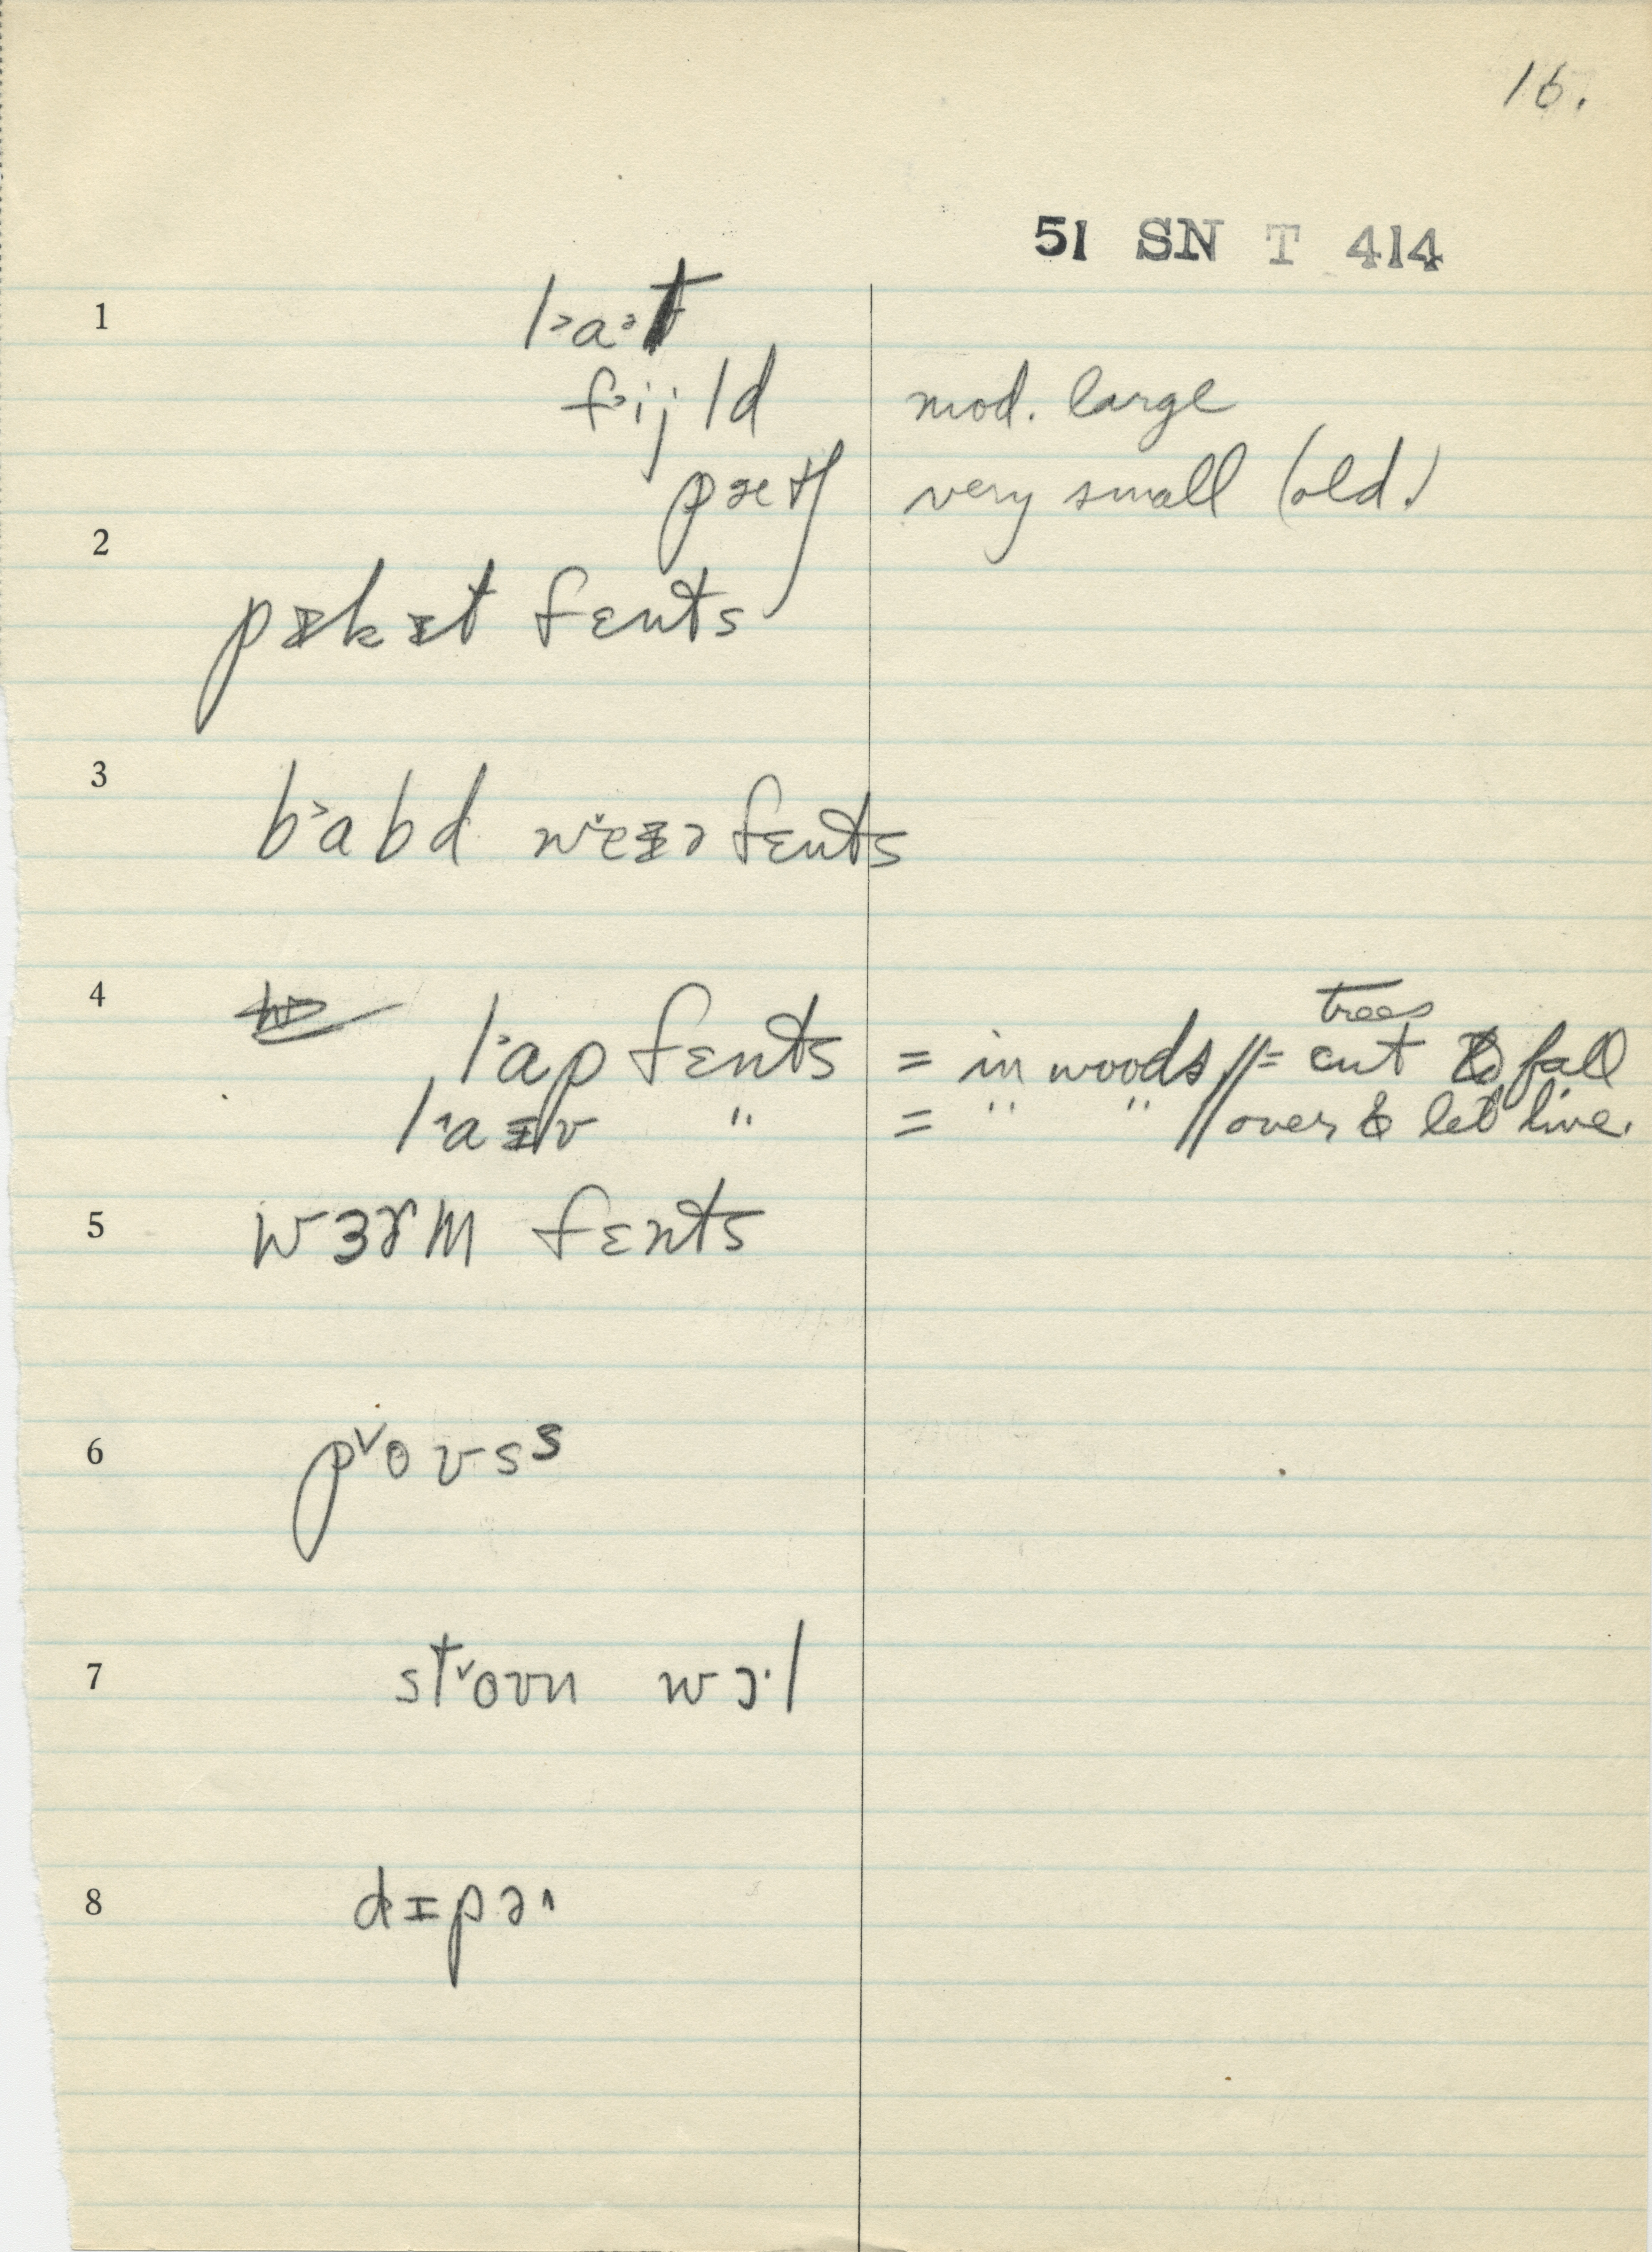 16.
51 SN T 414
1 l˃a˃t
f˃ij ld mod. large
pætʃ very small (old.)
2 pɪkɪt fɛnts
3 b˃abd wˇeɪə fɛnts
4 l˄ap fɛnts = in woods // = cut trees to fall
l˄aɪv " = " " // over & let live.
5 wɜrm fɛnts
6 pˇoʊsˢ
7 stˇoʊn wɔ·l
8 dɪpə˄